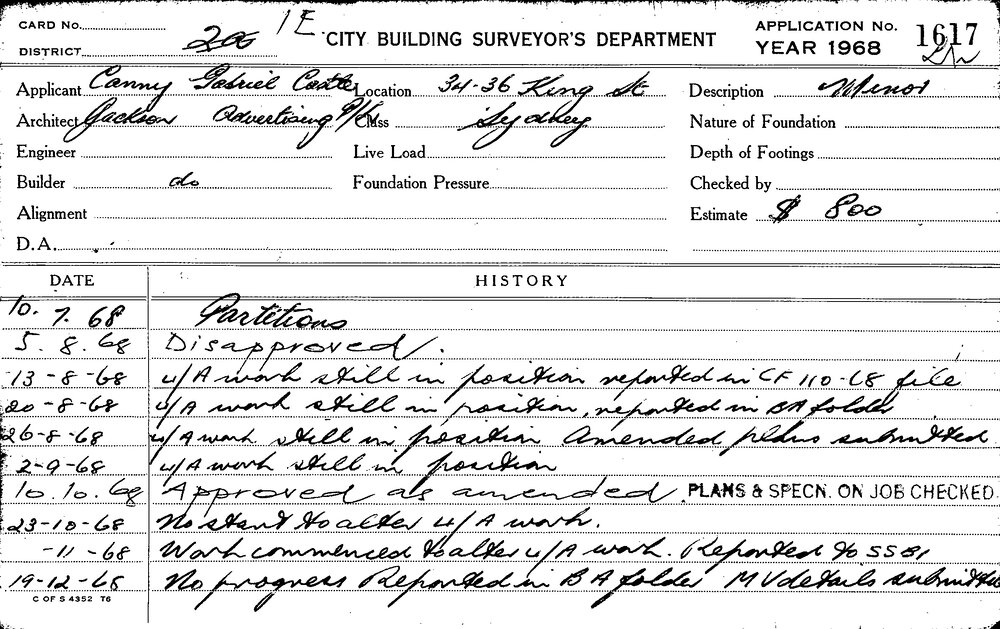 CARD No. 1E CITY BUILDING SURVEYOR'S DEPARTMENT APPLICATION No. 1617
DISTRICT 200 YEAR 1968
Applicant Canny Gabriel Castle Location 34-36 King St Description Minor
Architect Jackson Advertising P/L Class Sydney Nature of Foundation
Engineer Live Load Depth of Footings
Builder do Foundation Pressure Checked by
Alignment Estimate $ 800
D.A.
DATE HISTORY
10. 7. 68 Partitions
5. 8. 68 Disapproved.
13-8-68 u/A work still in position reported in CF 110-68 file
20-8-68 u/A work still in position, reported in BA folder
26-8-68 u/A work still in position Amended plans submitted
2-9-68 u/A work still in position
10.10.68 Approved as amended. PLANS & SPECN. ON JOB CHECKED
23-10-68 No start to alter u/A work.
-11-68 Work commenced to alter u/A work. Reported to SSBI
19-12-68 No progress Reported in BA folder MV details submitted
C OF S 4352 T6